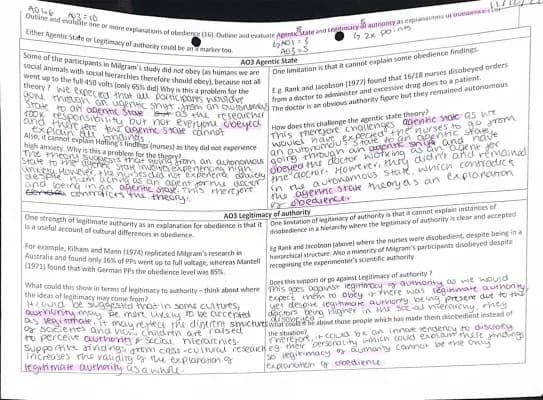 AO1=6 AO3=10
Outline and evaluate one or more explanations of obedience (16). Outline and evaluate Agentic State and Legitimacy of authority as explanations of obedience (16)
↳ AO1 = 3
AO3 = 5
↳ 2x points
Either Agentic State or Legitimacy of authority could be an 8 marker too.
AO3 Agentic State
Some of the participants in Milgram's study did not obey (as humans we are
social animals with social hierarchies therefore should obey), because not all
went up to the full 450 volts (only 65% did) Why is this a problem for the
theory? We expected that all participants would've
gone through an agentic shift from an autonomous
state to an agentic state as the researcher
took responsibility but not everyone obeyed
and therefore the agentic state cannot
explain all findings.
Also, it cannot explain Hofling's findings (nurses) as they did not experience
high anxiety. Why is this a problem for the theory?
The theory suggests that shift from an autonomous
state to the agentic state involves experiencing high
anxiety. However, the nurses did not experience anxiety
despite them acting as an agent for the doctor
and being in an agentic state. This therefore
contradicts the theory.
One limitation is that it cannot explain some obedience findings.
E.g. Rank and Jacobson (1977) found that 16/18 nurses disobeyed orders
from a doctor to administer and excessive drug does to a patient.
The doctor is an obvious authority figure but they remained autonomous
How does this challenge the agentic state theory?
This therefore challenges agentic state as we
would have expected the nurses to go from
an autonomous state to an agentic state,
going through an agentic shift and have
obeyed the doctor working as an agent for
the doctor. However, they didn't and remained
in the autonomous state, which contradicts
the agentic state theory as an explanation
of obedience.
AO3 Legitimacy of authority
One strength of legitimate authority as an explanation for obedience is that it
is a useful account of cultural differences in obedience.
For example, Kilham and Mann (1974) replicated Milgram's research in
Australia and found only 16% of PPs went up to full voltage, whereas Mantell
(1971) found that with German PPs the obedience level was 85%.
What could this show in terms of legitimacy to authority – think about where
the ideas of legitimacy may come from?
It could be suggested that in some cultures,
authority may be more likely to be accepted
as legitimate. It may reflect the different structures
of societies and how children are raised
to perceive authority & social hierarchies.
Supportive findings from cross-cultural research
increases the validity of the explanation of
legitimate authority as a whole.
One limitation of legitimacy of authority is that it cannot explain instances of
disobedience in a hierarchy where the legitimacy of authority is clear and accepted.
Eg Rank and Jacobson (above) where the nurses were disobedient, despite being in a
hierarchical structure. Also a minority of Milgram's participants disobeyed despite
recognising the experimenter's scientific authority.
Does this support or go against Legitimacy of authority ?
This goes against legitimacy of authority as we would
expect them to obey if there was legitimate authority,
yet despite legitimate authority being present due to the
doctors being higher in the social hierarchy, they
disobeyed.
What could it be about those people which has made them disobedient instead of
the situation?
Therefore, it could be an innate tendency to disobey
eg their personality which could explain these findings
so legitimacy of authority cannot be the only
explanation of obedience.